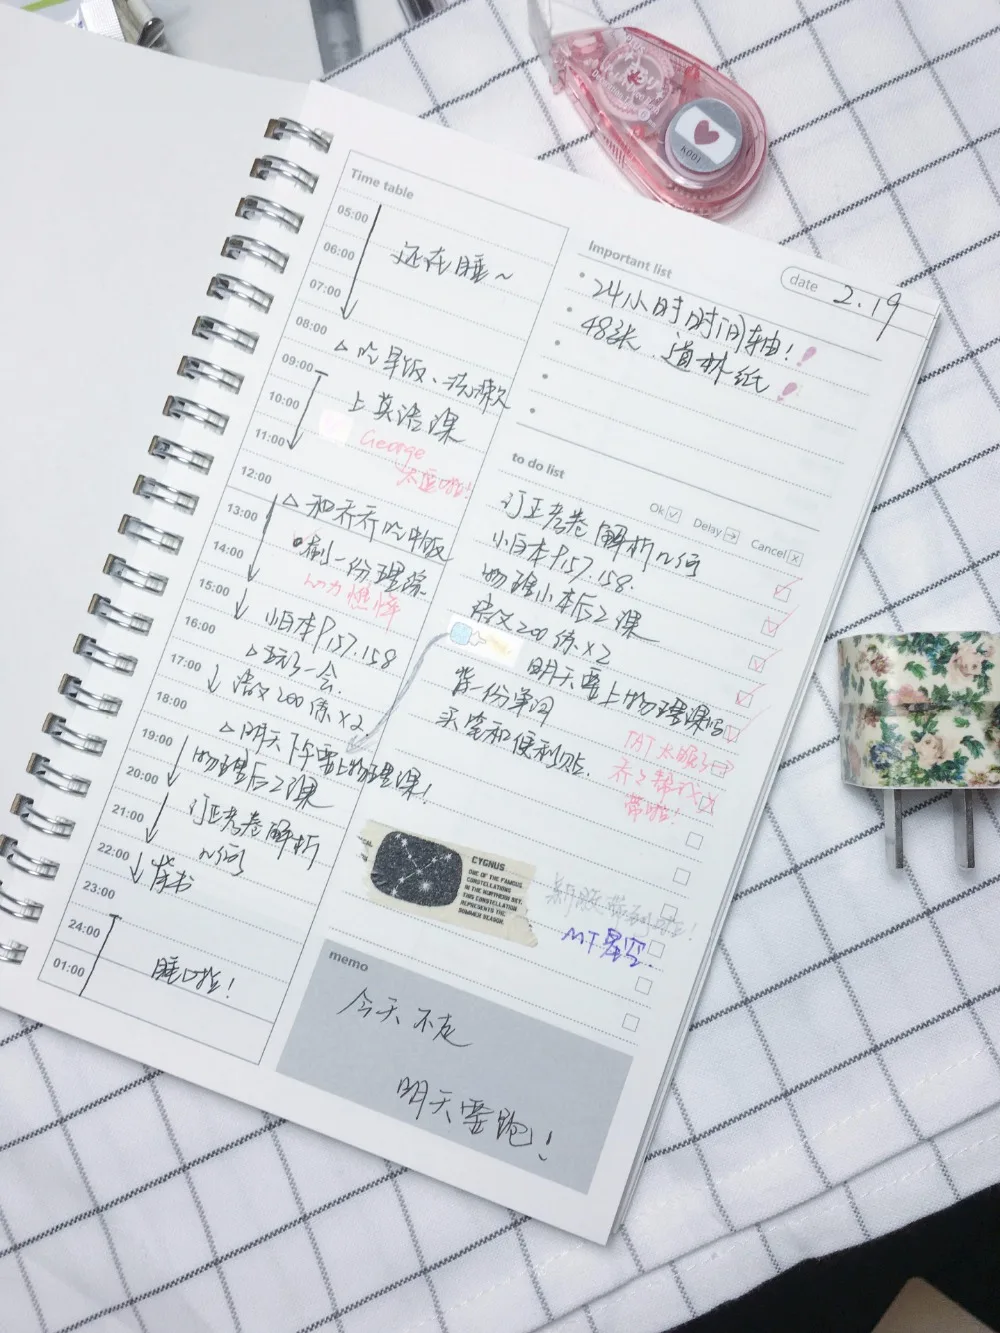 Time table
05:00
06:00
还在睡~
07:00
08:00
△吃早饭、洗漱
09:00
10:00
上英语课
11:00
George
太逗啦!
12:00
△和乔乔吃午饭
13:00
刷一份理综
14:00
动力燃烧
15:00
小白本P157.158
16:00
△玩了一会.
17:00
语文200练×2
18:00
△明天下午要上物理课!
19:00
物理后2课
20:00
订正考卷解析
21:00
几何
22:00
背书
23:00
24:00
睡啦!
01:00
date 2.19
Important list
24小时时间轴!
48张、道林纸
to do list
Ok Delay Cancel
订正考卷解析几何
小白本P157.158.
物理小本后2课
语文200练×2
明天要上物理课
背一份单词
买笔和便利贴.
TAT太眼了
乔乔帮我
带啦!
CYGNUS
ONE OF THE FAMOUS
CONSTELLATIONS
IN THE NORTHERN SKY.
THIS CONSTELLATION
REPRESENTS THE
SUMMER SEASON.
新胶带到啦!
MT星空.
memo
今天不走
明天要跑!
K001